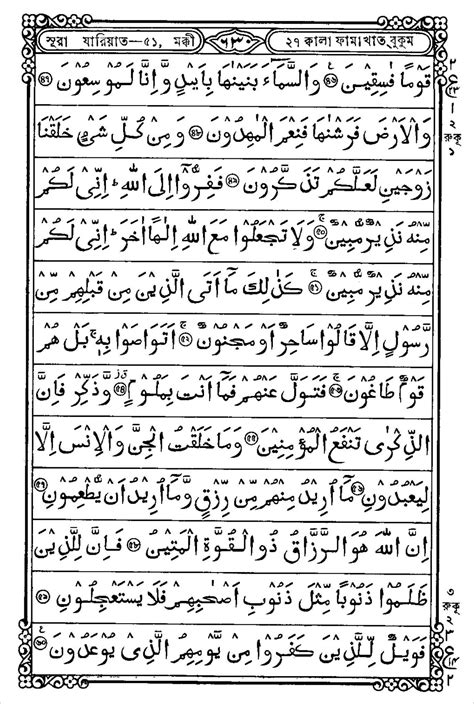 সূরা যারিয়াত—৫১, মক্কী ৬৩০ ২৭ ক্বালা ফামাখাত্ববুকুম
قَوْمًا فٰسِقِيْنَ ﴿৪৬﴾ وَالسَّمَآءَ بَنَيْنٰهَا بِاَيْىدٍ وَّاِنَّا لَمُوْسِعُوْنَ ﴿৪৭﴾
وَالْاَرْضَ فَرَشْنٰهَا فَنِعْمَ الْمٰهِدُوْنَ ﴿৪৮﴾ وَمِنْ كُلِّ شَىْءٍ خَلَقْنَا
زَوْجَيْنِ لَعَلَّكُمْ تَذَكَّرُوْنَ ﴿৪৯﴾ فَفِرُّوْٓا اِلَى اللّٰهِ ؕ اِنِّىْ لَكُمْ
مِّنْهُ نَذِيْرٌ مُّبِيْنٌ ﴿৫০﴾ وَلَا تَجْعَلُوْا مَعَ اللّٰهِ اِلٰهًا اٰخَرَ ؕ اِنِّىْ لَكُمْ
مِّنْهُ نَذِيْرٌ مُّبِيْنٌ ﴿৫১﴾ كَذٰلِكَ مَآ اَتَى الَّذِيْنَ مِنْ قَبْلِهِمْ مِّنْ
رَّسُوْلٍ اِلَّا قَالُوْا سَاحِرٌ اَوْ مَجْنُوْنٌ ﴿৫২﴾ اَتَوَاصَوْا بِهٖ ۚ بَلْ هُمْ
قَوْمٌ طَاغُوْنَ ﴿৫৩﴾ فَتَوَلَّ عَنْهُمْ فَمَآ اَنْتَ بِمَلُوْمٍ ﴿৫৪﴾ وَّذَكِّرْ فَاِنَّ
الذِّكْرٰى تَنْفَعُ الْمُؤْمِنِيْنَ ﴿৫৫﴾ وَمَا خَلَقْتُ الْجِنَّ وَالْاِنْسَ اِلَّا
لِيَعْبُدُوْنِ ﴿৫৬﴾ مَآ اُرِيْدُ مِنْهُمْ مِّنْ رِّزْقٍ وَّمَآ اُرِيْدُ اَنْ يُّطْعِمُوْنِ ﴿৫৭﴾
اِنَّ اللّٰهَ هُوَ الرَّزَّاقُ ذُو الْقُوَّةِ الْمَتِيْنُ ﴿৫৮﴾ فَاِنَّ لِلَّذِيْنَ
ظَلَمُوْا ذَنُوْبًا مِّثْلَ ذَنُوْبِ اَصْحٰبِهِمْ فَلَا يَسْتَعْجِلُوْنِ ﴿৫৯﴾
فَوَيْلٌ لِّلَّذِيْنَ كَفَرُوْا مِنْ يَّوْمِهِمُ الَّذِىْ يُوْعَدُوْنَ ﴿৬০﴾